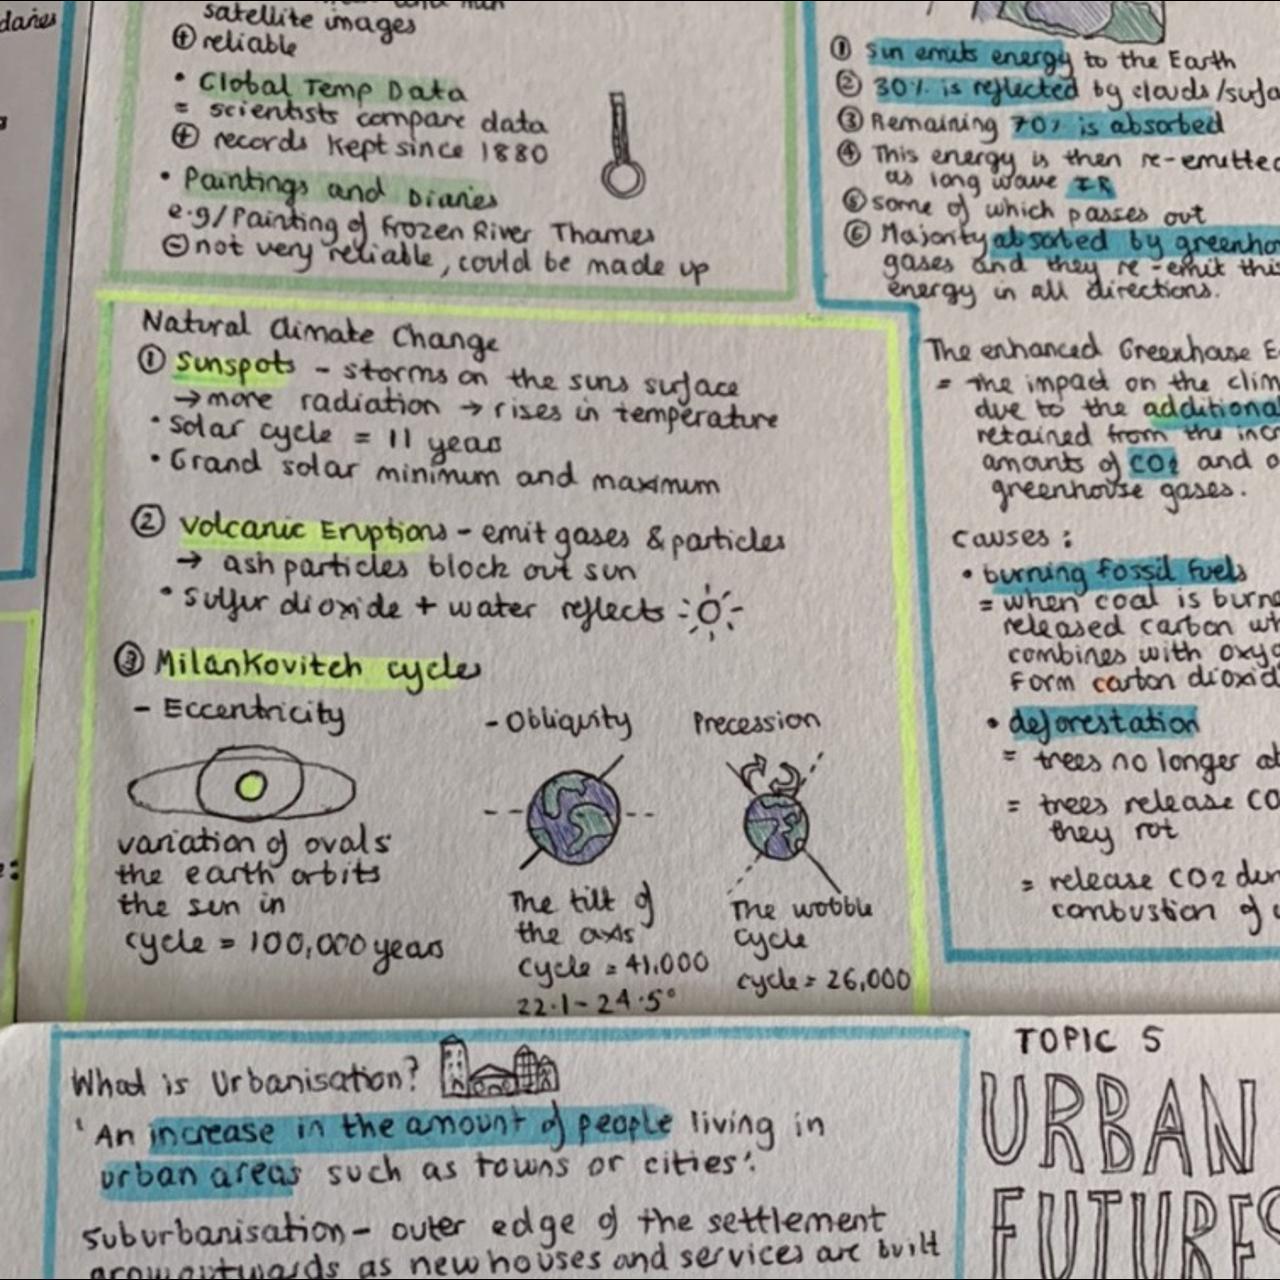 daries
satellite images
⊕ reliable
• Global Temp Data
= scientists compare data
⊕ records kept since 1880
• Paintings and Diaries
e.g/Painting of Frozen River Thames
⊖ not very reliable, could be made up
① Sun emits energy to the Earth
② 30% is reflected by clouds/surfa
③ Remaining 70% is absorbed
④ This energy is then re-emitted
as long wave IR
⑤ some of which passes out
⑥ Majority absorbed by greenho
gases and they re-emit this
energy in all directions.
Natural Climate Change
① Sunspots - storms on the suns surface
→ more radiation → rises in temperature
• Solar cycle = 11 years
• Grand solar minimum and maximum
② Volcanic Eruptions - emit gases & particles
→ ash particles block out sun
• Sulfur dioxide + water reflects
③ Milankovitch cycles
- Eccentricity
variation of ovals
the earth orbits
the sun in
cycle = 100,000 years
- Obliquity
The tilt of
the axis
cycle = 41,000
22.1-24.5°
Precession
The wobble
cycle
cycle = 26,000
The enhanced Greenhouse E
= the impact on the clim
due to the additional
retained from the incr
amounts of CO2 and o
greenhouse gases.
causes:
• burning fossil fuels
= when coal is burne
released carbon wh
combines with oxyg
form carbon dioxid
• deforestation
= trees no longer ab
= trees release CO
they rot
= release CO2 durin
combustion of
What is Urbanisation?
'An increase in the amount of people living in
urban areas such as towns or cities'.
Suburbanisation - outer edge of the settlement
grow outwards as new houses and services are built
TOPIC 5
URBAN
FUTURES